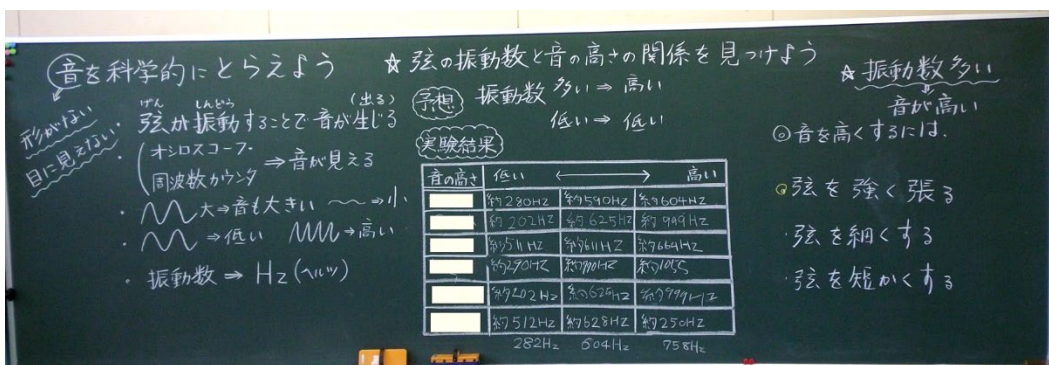 音を科学的にとらえよう
形がない
目に見えない
げん しんどう (出る)
・弦が振動することで音が生じる
・オシロスコープ・
周波数カウンタ ⇒音が見える
・大⇒音も大きい ⇒小
・⇒低い ⇒高い
・振動数⇒Hz(ヘルツ)
☆弦の振動数と音の高さの関係を見つけよう
予想 振動数 多い⇒高い
低い⇒低い
実験結果
音の高さ 低い ←→ 高い
約280Hz 約590Hz 約604Hz
約202Hz 約625Hz 約999Hz
約511Hz 約611Hz 約664Hz
約290Hz 約1055
約202Hz 約625Hz 約999Hz
約512Hz 約628Hz 約250Hz
282Hz 504Hz 758Hz
☆振動数多い
音が高い
◎音を高くするには.
○弦を強く張る
・弦を細くする
・弦を短かくする